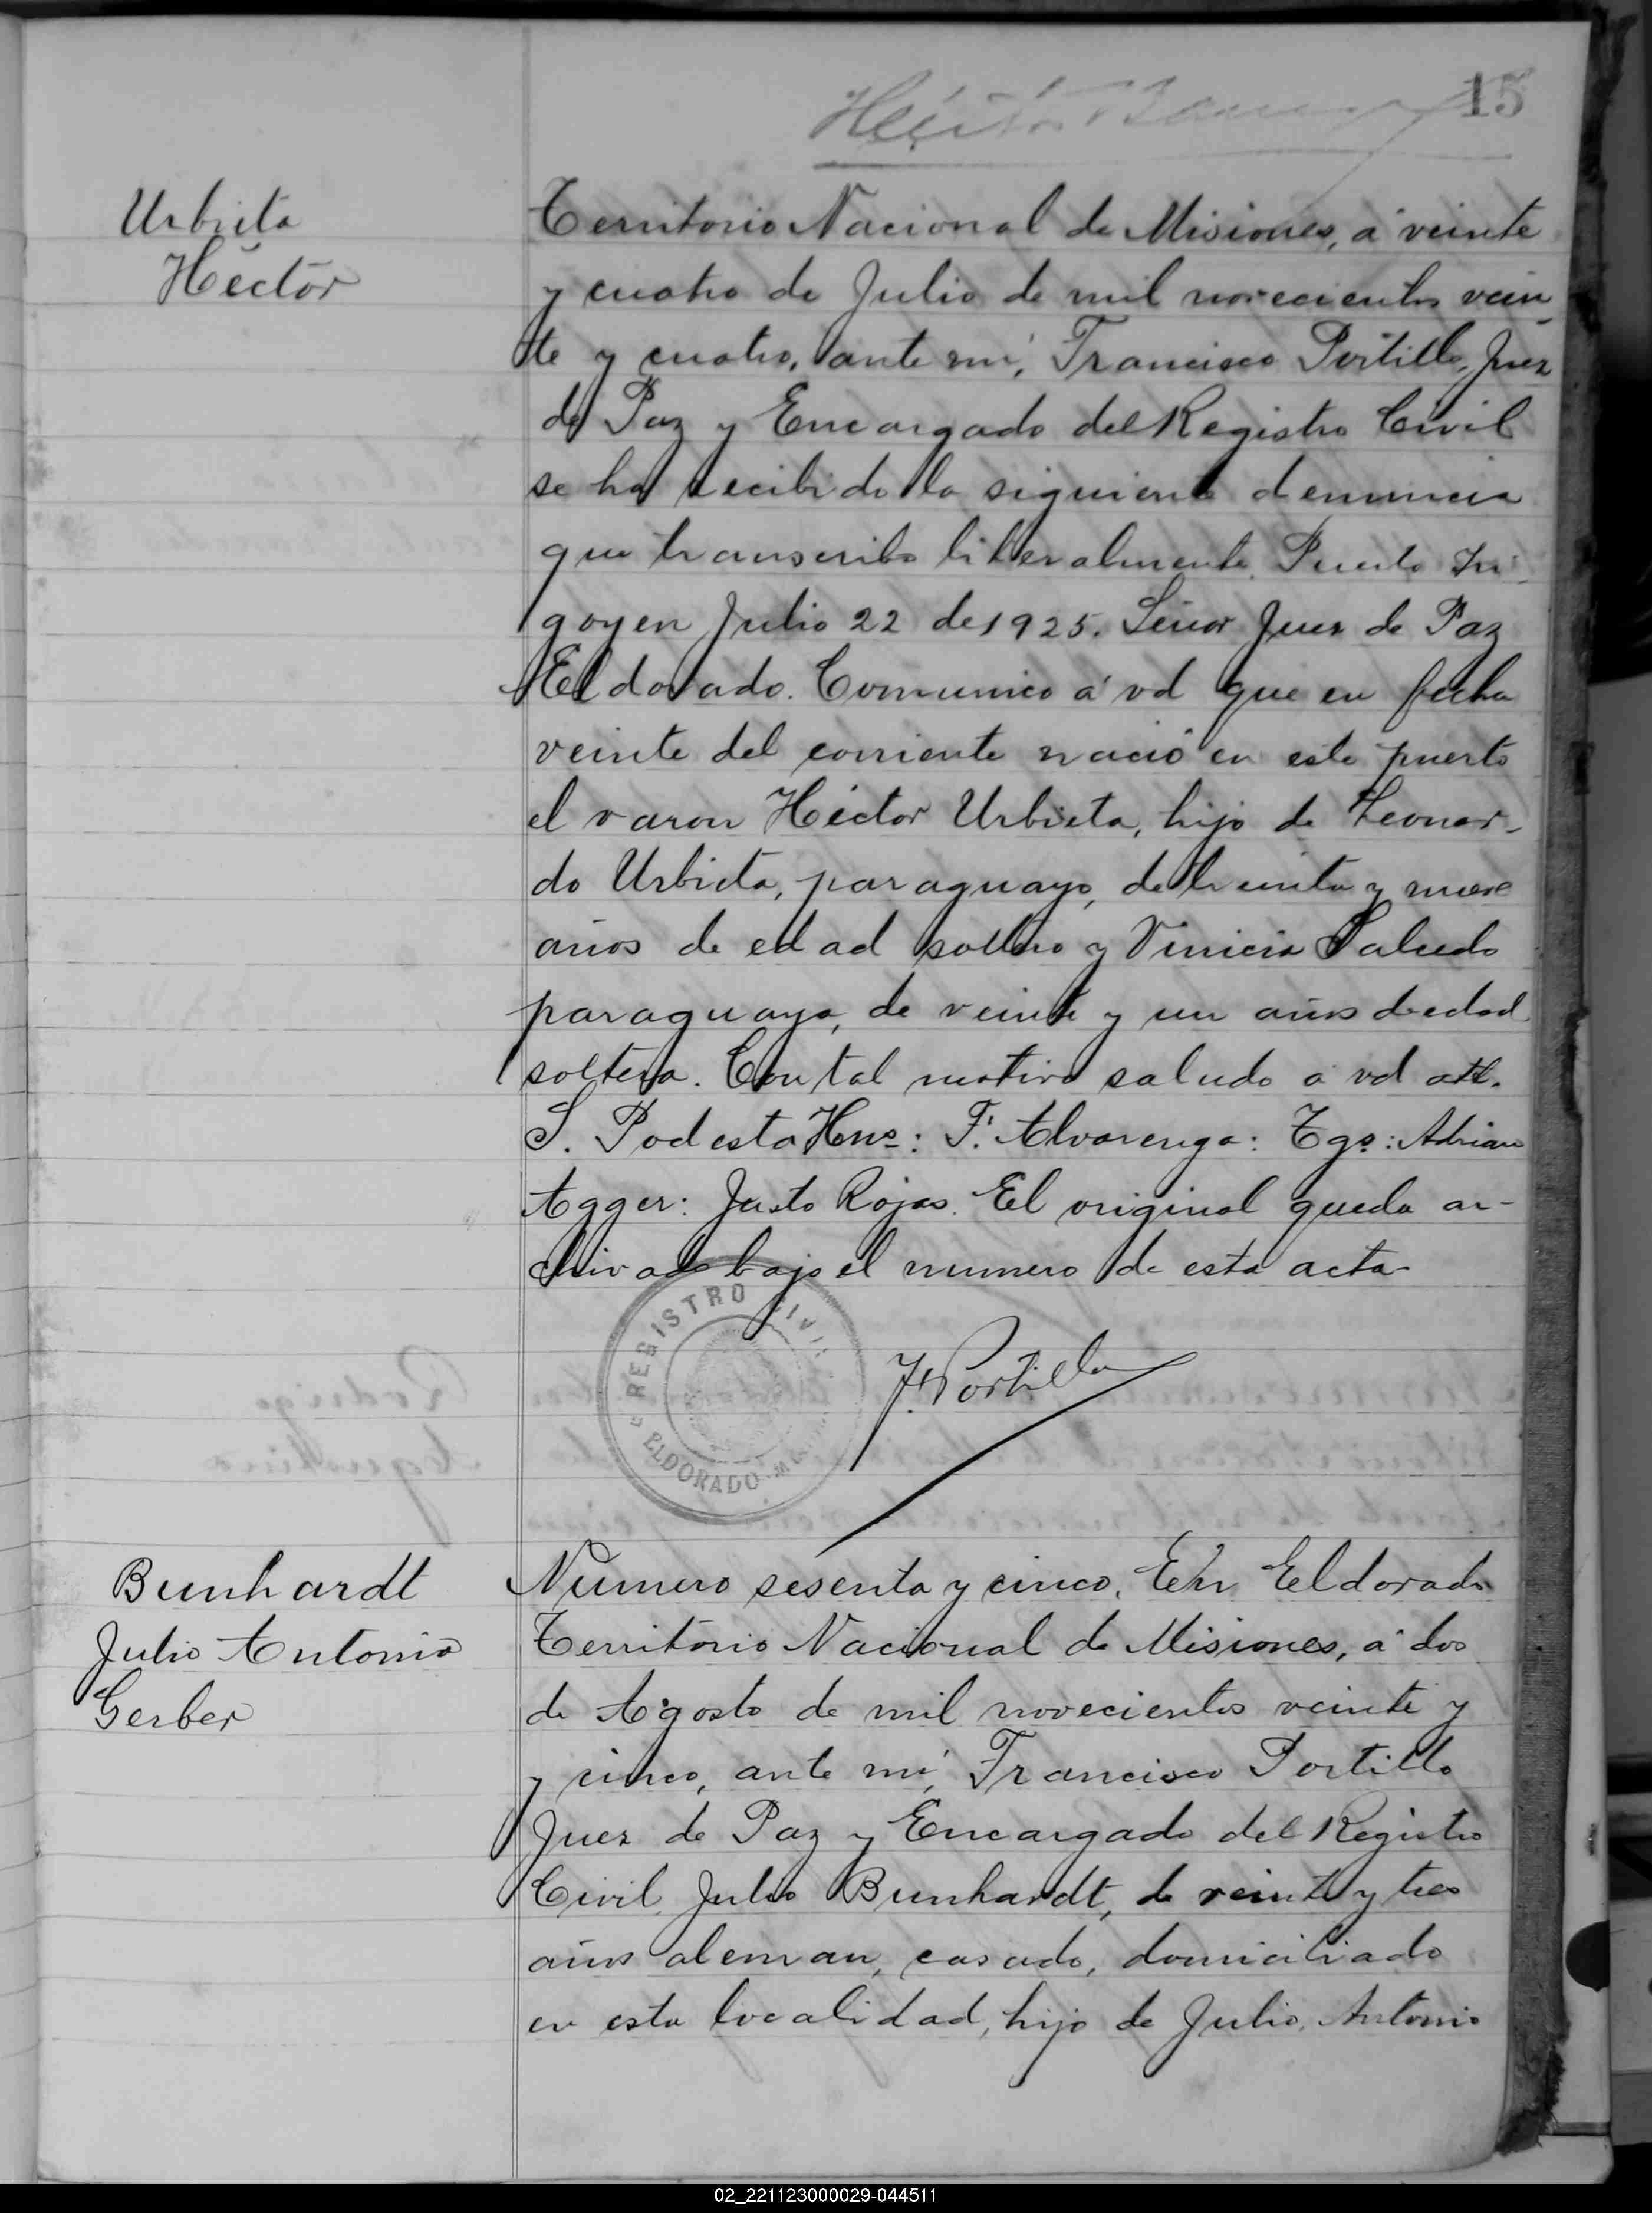 15
Héctor
Urbieta
Héctor
Territorio Nacional de Misiones, á veinte
y cuatro de Julio de mil novecientos vein
te y cuatro, ante mi, Francisco Portillo, Juez
de Paz y Encargado del Registro Civil
se ha recibido la siguiente denuncia
que transcribo literalmente. Puerto Iri
goyen Julio 22 de 1925. Señor Juez de Paz
Eldorado. Comunico á vd que en fecha
veinte del corriente nació en este puerto
el varon Héctor Urbieta, hijo de Leonar-
do Urbieta, paraguayo, de treinta y nueve
años de edad soltero y Vinicia Salcedo
paraguaya, de veinte y un años de edad
soltera. Con tal motivo saludo á vd att.
S. Podesta Hnos: F. Alvarenga: Tgo: Adrian
Agger: Justo Rojas. El original queda ar-
chivado bajo el numero de esta acta
REGISTRO CIVIL
ELDORADO
F. Portillo
Bunhardt
Julio Antonio
Gerber
Numero sesenta y cinco. En Eldorado
Territorio Nacional de Misiones, á dos
de Agosto de mil novecientos veinte y
y cinco, ante mi, Francisco Portillo
Juez de Paz y Encargado del Registro
Civil, Julio Bunhardt, de veinte y tres
años aleman, casado, domiciliado
en esta localidad, hijo de Julio, Antonio
02_221123000029-044511